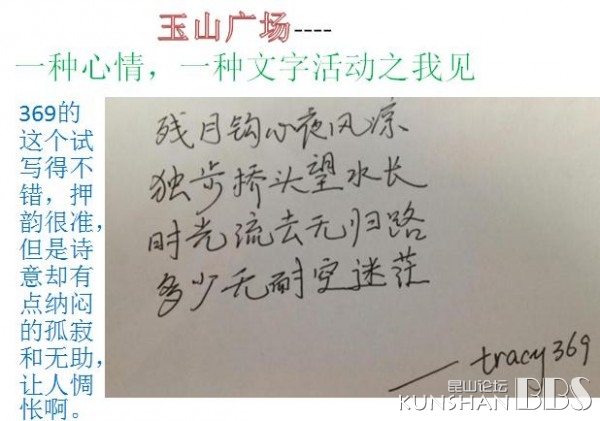 玉山广场----
一种心情，一种文字活动之我见
369的
这个试
写得不
错，押
韵很准，
但是诗
意却有
点纳闷
的孤寂
和无助，
让人惆
怅啊。
残月钩心夜风凉
独步桥头望水长
时光流去无归路
多少无耐空迷茫
——tracy369
昆山论坛
KUNSHAN BBS